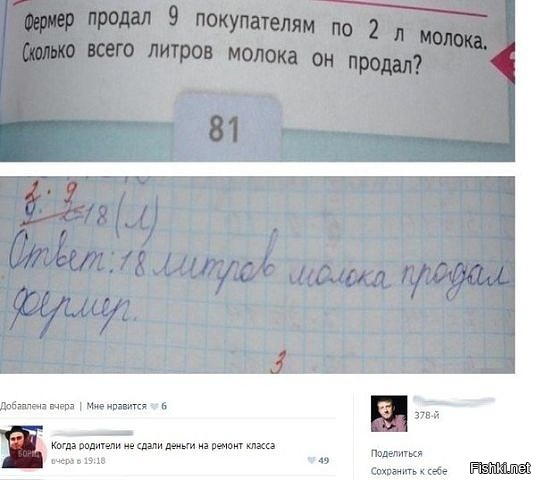 Фермер продал 9 покупателям по 2 л молока.
Сколько всего литров молока он продал?
81
2 · 9
9 · 2=18 (л)
Ответ: 18 литров молока продал
фермер.
3
Добавлена вчера | Мне нравится 6
378-й
Когда родители не сдали деньги на ремонт класса
вчера в 19:18
49
Поделиться
Сохранить к себе
Fishki.net